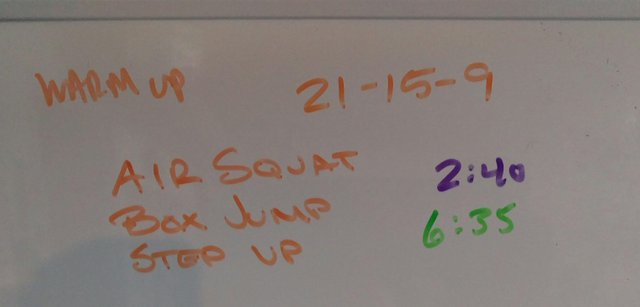 WARM UP 21-15-9
AIR SQUAT 2:40
BOX JUMP 6:35
STEP UP